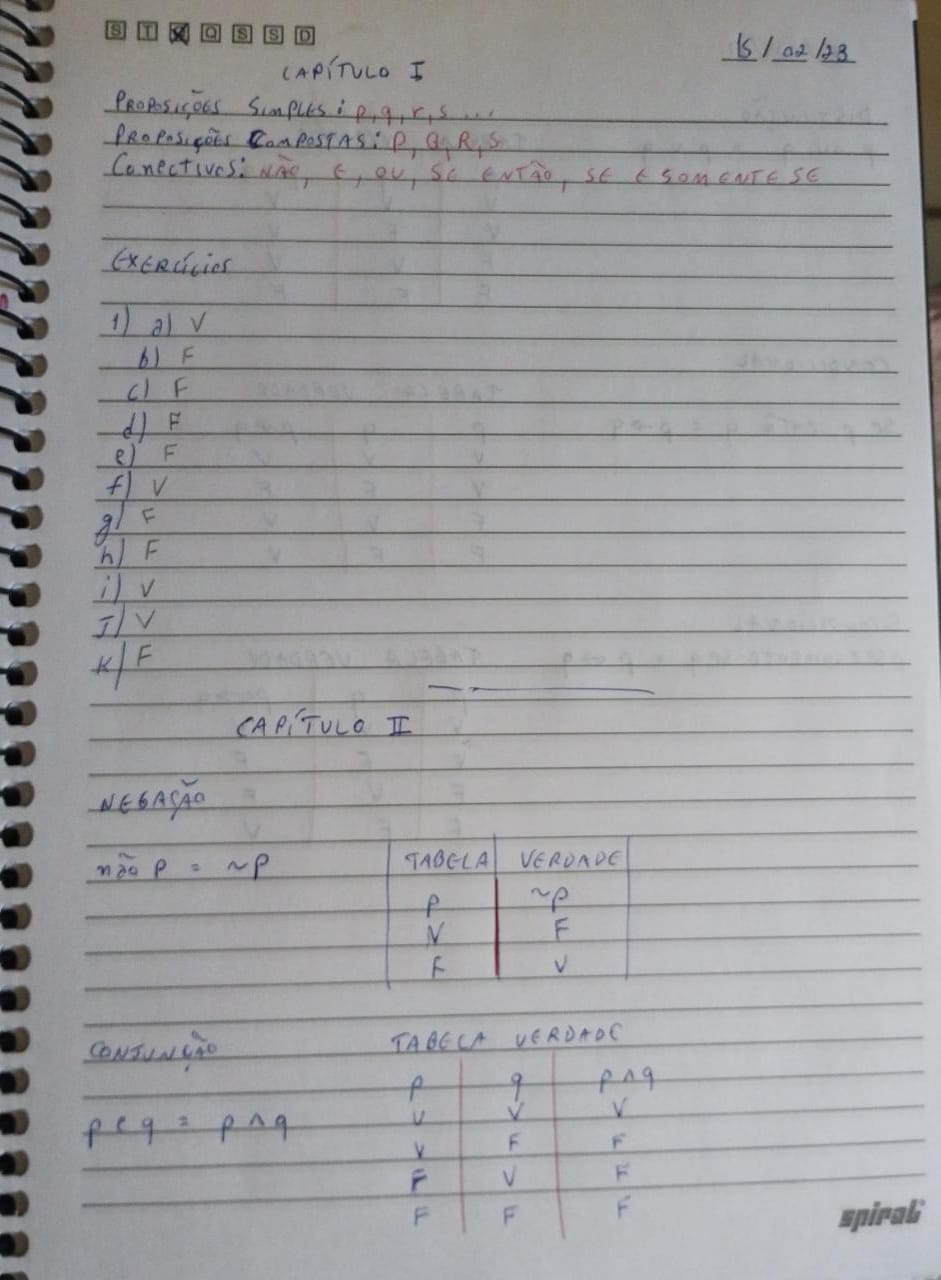 S T Q Q S S D
15/02/23
CAPÍTULO I
PROPOSIÇÕES SIMPLES: p, q, r, s ...
PROPOSIÇÕES COMPOSTAS: P, Q, R, S
CONECTIVOS: NÃO, E, OU, SE ENTÃO, SE E SOMENTE SE
EXERCÍCIOS
1) a) V
b) F
c) F
d) F
e) F
f) V
g) F
h) F
i) V
J) V
K) F
CAPÍTULO II
NEGAÇÃO
não p = ~p
TABELA VERDADE
p ~p
V F
F V
CONJUNÇÃO
TABELA VERDADE
p q p ∧ q
p e q = p ∧ q
V V V
V F F
F V F
F F F
spiral